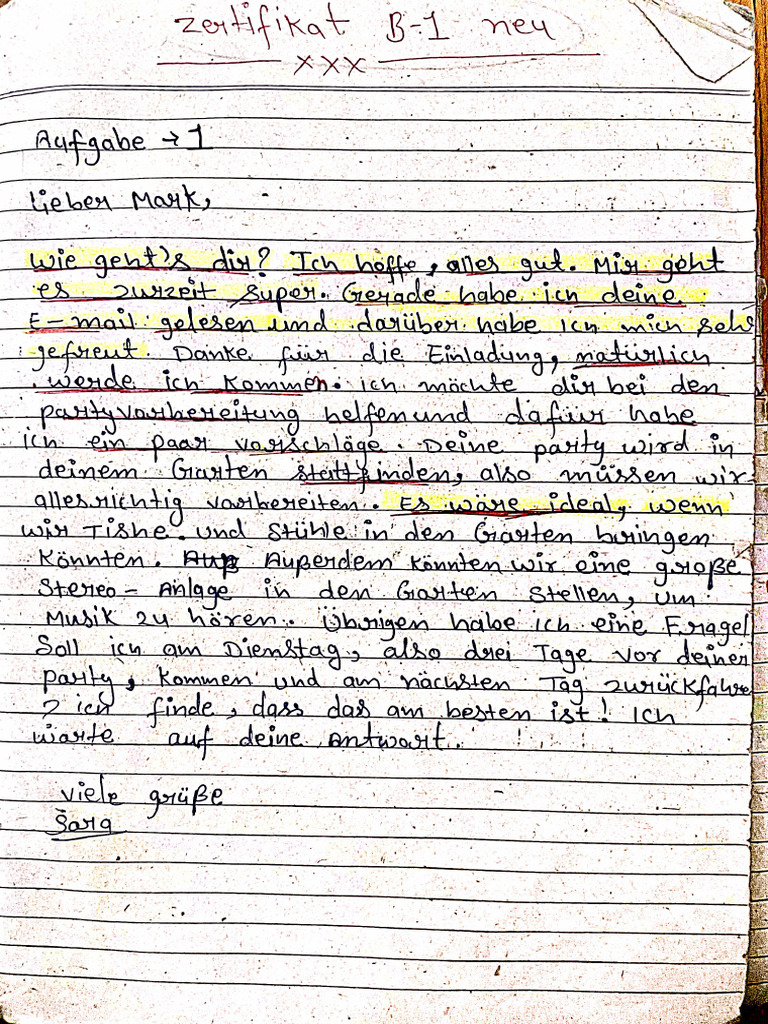 Zertifikat B-1 neu
xxx
Aufgabe → 1
Lieber Mark,
Wie geht's dir? Ich hoffe, alles gut. Mir geht
es zurzeit super. Gerade habe ich deine
E-mail gelesen und darüber habe ich mich sehr
gefreut. Danke für die Einladung, natürlich
werde ich kommen. ich möchte dir bei den
partyvorbereitung helfen und dafür habe
ich ein paar vorschläge. Deine party wird in
deinem Garten stattfinden, also müssen wir
alles richtig vorbereiten. Es wäre ideal, wenn
wir Tishe und Stühle in den Garten bringen
könnten. Außerdem könnten wir eine große
Stereo-Anlage in den Garten stellen, um
Musik zu hören. Übrigen habe ich eine Frage!
Soll ich am Dienstag, also drei Tage vor deiner
party, kommen und am nächsten Tag zurückfahre
? ich finde, dass das am besten ist! Ich
warte auf deine Antwort.
viele grüße
Sara